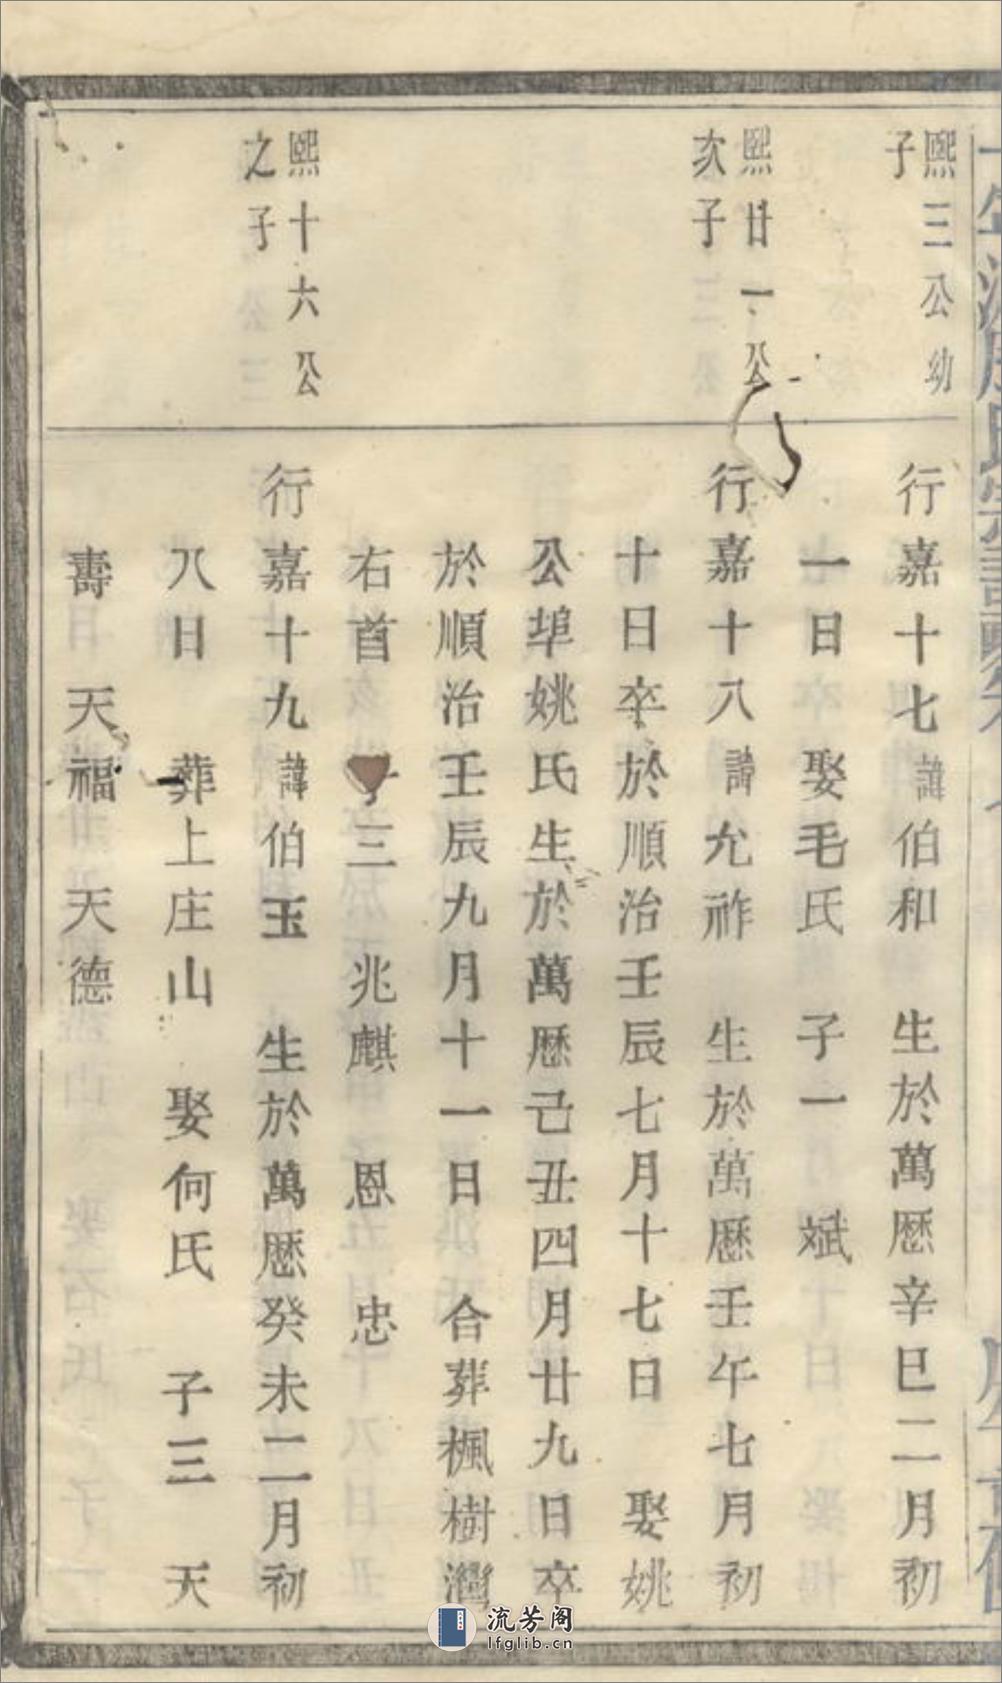 熙三公幼
子
行嘉十七諱伯和　生於萬歷辛巳二月初
一日　娶毛氏　子一　斌
熙廿一公
次子
行嘉十八諱允祚　生於萬歷壬午七月初
十日卒於順治壬辰七月十七日　娶姚
公埠姚氏生於萬歷己丑四月廿九日卒
於順治壬辰九月十一日　合葬楓樹灣
右首　三　兆麒　恩　忠
熙十六公
之子
行嘉十九諱伯玉　生於萬歷癸未二月初
八日　葬上庄山　娶何氏　子三　天
壽　天福　天德
流芳阁
lfglib.cn